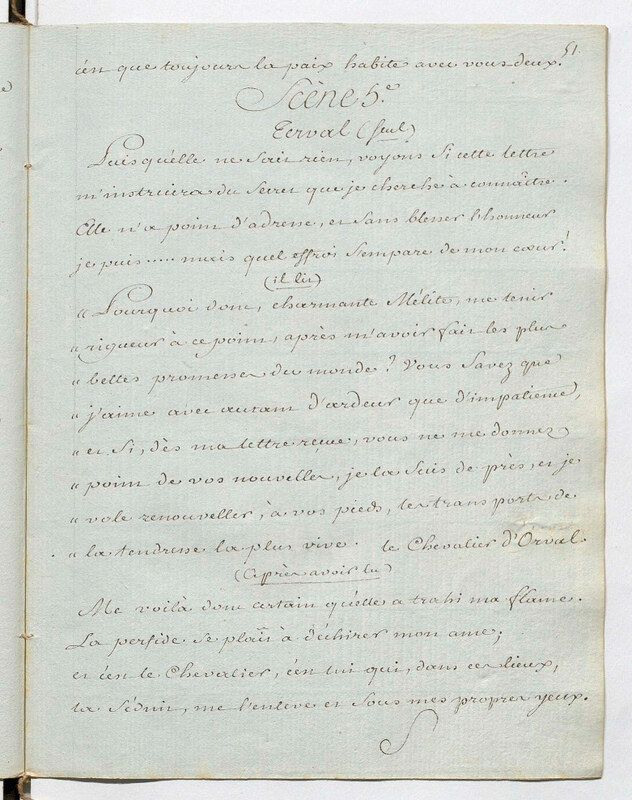 51
c'est que toujours la paix habite avec vous deux.
Scène 5.e
Terval (seul)
Puisqu'elle ne sait rien, voyons si cette lettre
m'instruira du secret que je cherche à connaître.
Elle n'a point d'adresse, et sans blesser l'honneur
je puis ..... mais quel effroi s'empare de mon cœur!
(il lit)
« Pourquoi donc, charmante Mélite, me tenir
« rigueur à ce point, après m'avoir fait les plus
« belles promesses du monde? Vous savez que
« j'aime avec autant d'ardeur que d'impatience,
« et si, dès ma lettre reçue, vous ne me donnez
« point de vos nouvelles, je la suis de près, et je
« vole renouveller, à vos pieds, les transports de
« la tendresse la plus vive. le Chevalier d'Orval
(après avoir lu)
Me voilà donc certain qu'elle a trahi ma flame.
La perfide se plaît à déchirer mon ame;
et c'est le Chevalier, c'est lui qui, dans ces lieux,
la séduit, me l'enleve et sous mes propres yeux.